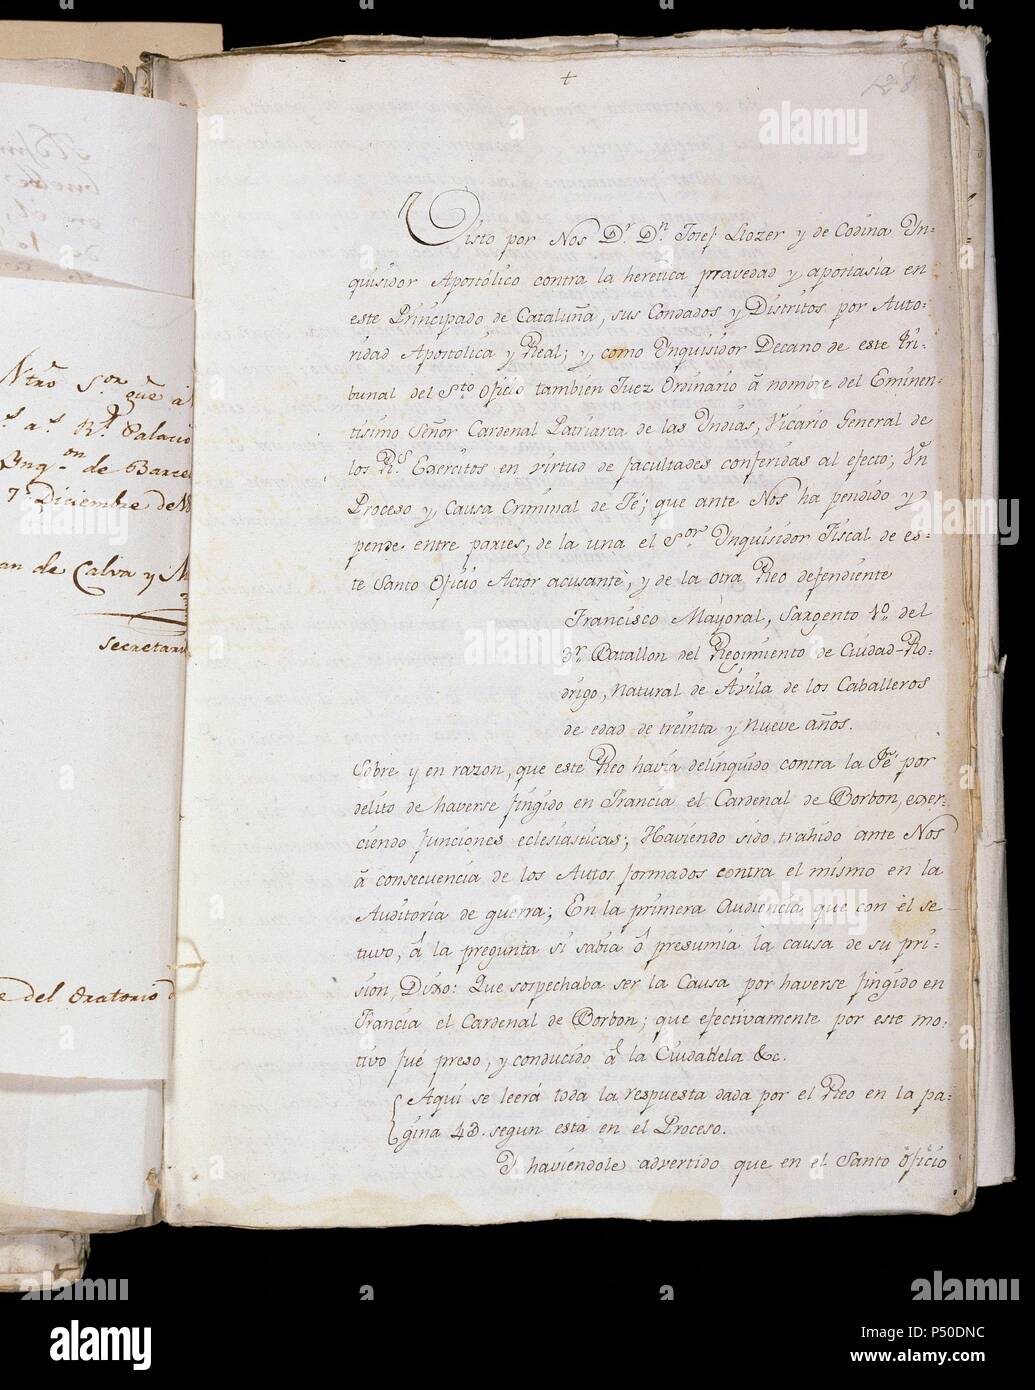 +
128
Visto por Nos Dr. Dn. Josef Llozer y de Codina Yn=
quisidor Apostólico contra la heretica pravedad y apostasia en
este Principado de Cataluña, sus Condados y Distritos por Auto=
ridad Apostolica y Real; y como Ynquisidor Decano de este Tri=
bunal del Sto. Oficio tambien Juez Ordinario á nombre del Eminen=
tisimo Señor Cardenal Patriarca de las Yndias, Vicario General de
los Rs. Exercitos en virtud de facultades conferidas al efecto; Vn
Proceso y Causa Criminal de Fé; que ante Nos ha pendido y
pende entre partes, de la una el Sor. Ynquisidor Fiscal de es=
te Santo Oficio Actor acusante, y de la otra Reo defendiente
Francisco Mayoral, Sargento 1o. del
3r. Batallon del Regimiento de Ciudad-Ro=
drigo, Natural de Ávila de los Caballeros
de edad de treinta y nueve años.
Sobre y en razon, que este Reo havia delinquido contra la Fé por
delito de haverse fingido en Francia el Cardenal de Borbon, exer=
ciendo funciones eclesiasticas; Haviendo sido trahido ante Nos
á consecuencia de los Autos formados contra el mismo en la
Auditoria de guerra; En la primera Audiencia que con él se
tuvo, á la pregunta si sabia ó presumia la causa de su pri=
sion, Dixo: Que sospechaba ser la Causa por haverse fingido en
Francia el Cardenal de Borbon; que efectivamente por este mo=
tivo fué preso, y conducido á la Ciudadela &c.
Aqui se leerá toda la respuesta dada por el Reo en la pa=
gina 43. segun está en el Proceso.
Y haviendole advertido que en el Santo Oficio
Ntro Sor. que
as. Rl. Palacio
Ynqon. de Barce
7 Diciembre de
an de Calva y M
secretari
e del Oratorio
alamy
Image ID: P50DNC
www.alamy.com